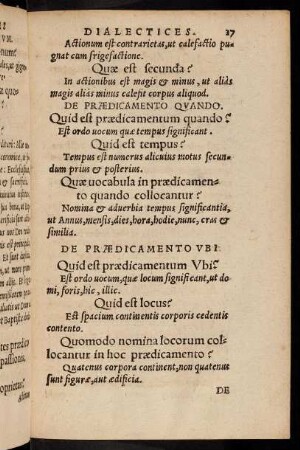 DIALECTICES. 27
Actionum est contrarietas, ut calefactio pu-
gnat cum frigefactione.
Quæ est secunda?
In actionibus est magis & minus, ut aliàs
magis aliàs minus calefit corpus aliquod.
DE PRÆDICAMENTO QVANDO.
Quid est prædicamentum quando?
Est ordo uocum quæ tempus significant.
Quid est tempus?
Tempus est numerus alicuius motus secun-
dum prius & posterius.
Quæ uocabula in prædicamen-
to quando collocantur?
Nomina & aduerbia tempus significantia,
ut Annus, mensis, dies, hora, hodie, nunc, cras &
similia.
DE PRÆDICAMENTO VBI.
Quid est prædicamentum Vbi?
Est ordo uocum, quæ locum significant, ut do
mi, foris, hic, illic.
Quid est locus?
Est spacium continentis corporis cedentis
contento.
Quomodo nomina locorum col-
locantur in hoc prædicamento?
Quatenus corpora continent, non quatenus
sunt figuræ, aut ædificia.
DE